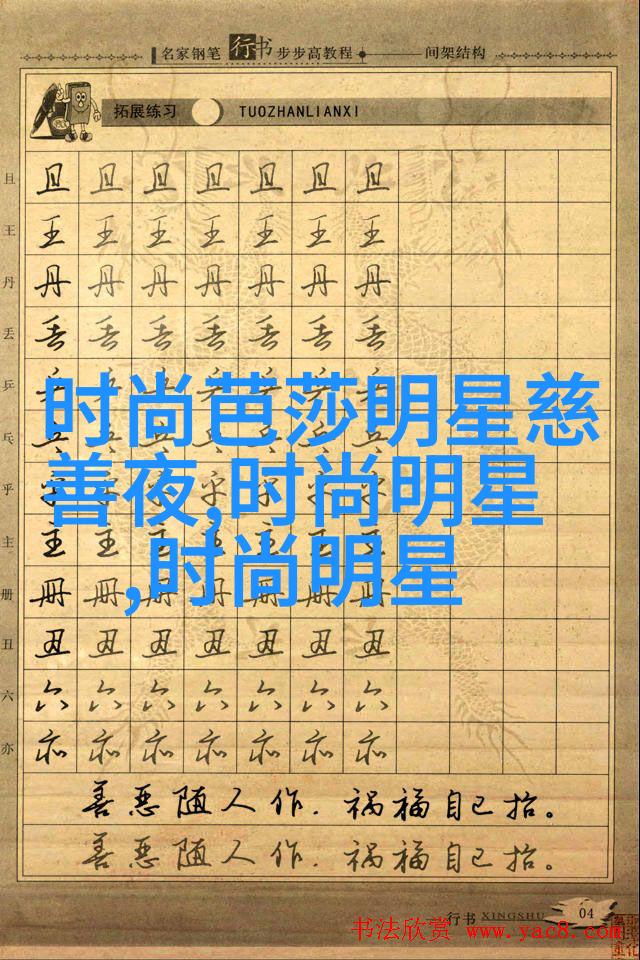 名家钢笔行书步步高教程 间架结构
拓展练习 TUOZHANLIANXI
且 且 且 且 且 且 且 且
王 王 王 王 王 王 王 王
丹 丹 丹 丹 丹 丹 丹 丹
丢 丢 丢 丢 丢 丢 丢 丢
乒
乓
时尚芭莎明星慈
善夜,时尚明星
,时尚明星
乎
主
册 册 册 册 册 册 册 册
丑 丑 丑 丑 丑 丑 丑 丑
六 六 六 六 六 六 六 六
亦 亦 亦 亦 亦 亦 亦 亦
善恶随人作.祸福自己招。
善恶随人作.祸福自己招。
行书 XINGSHU 04
书法欣赏 www.yac8.com